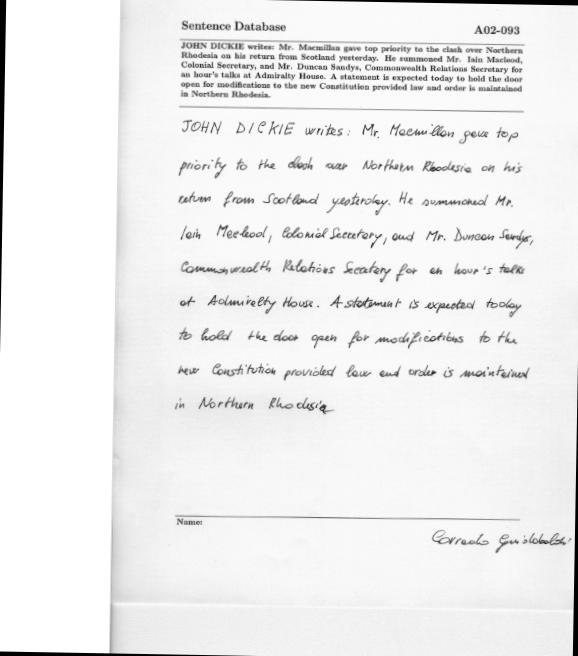 Sentence Database
A02-093
JOHN DICKIE writes: Mr. Macmillan gave top priority to the clash over Northern
Rhodesia on his return from Scotland yesterday. He summoned Mr. Iain Macleod,
Colonial Secretary, and Mr. Duncan Sandys, Commonwealth Relations Secretary for
an hour's talks at Admiralty House. A statement is expected today to hold the door
open for modifications to the new Constitution provided law and order is maintained
in Northern Rhodesia.
JOHN DICKIE writes: Mr. Macmillan gave top
priority to the clash over Northern Rhodesia on his
return from Scotland yesterday. He summoned Mr.
Iain Macleod, Colonial Secretary, and Mr. Duncan Sandys,
Commonwealth Relations Secretary for an hour's talks
at Admiralty House. A statement is expected today
to hold the door open for modifications to the
new Constitution provided law and order is maintained
in Northern Rhodesia
Name:
Corrado